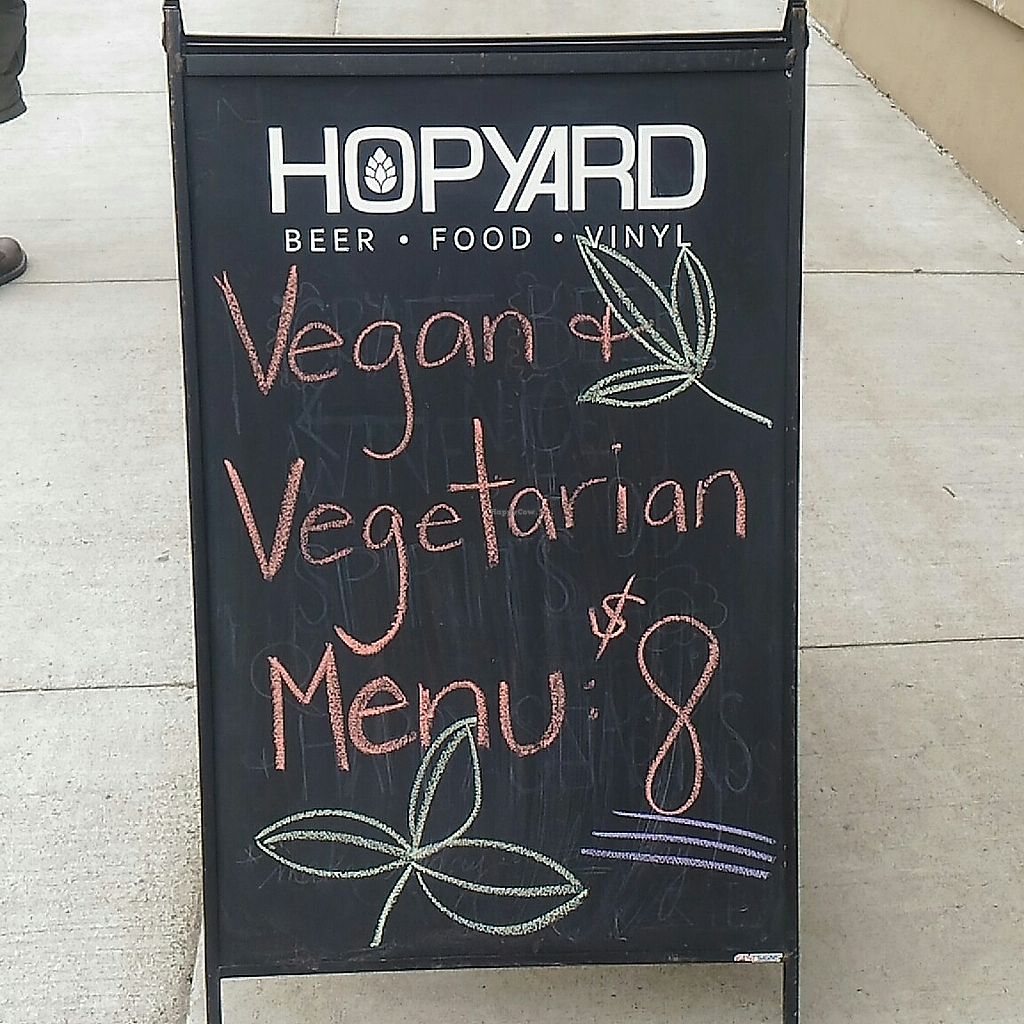 HOPYARD
BEER • FOOD • VINYL
Vegan &
Vegetarian
Menu: $8